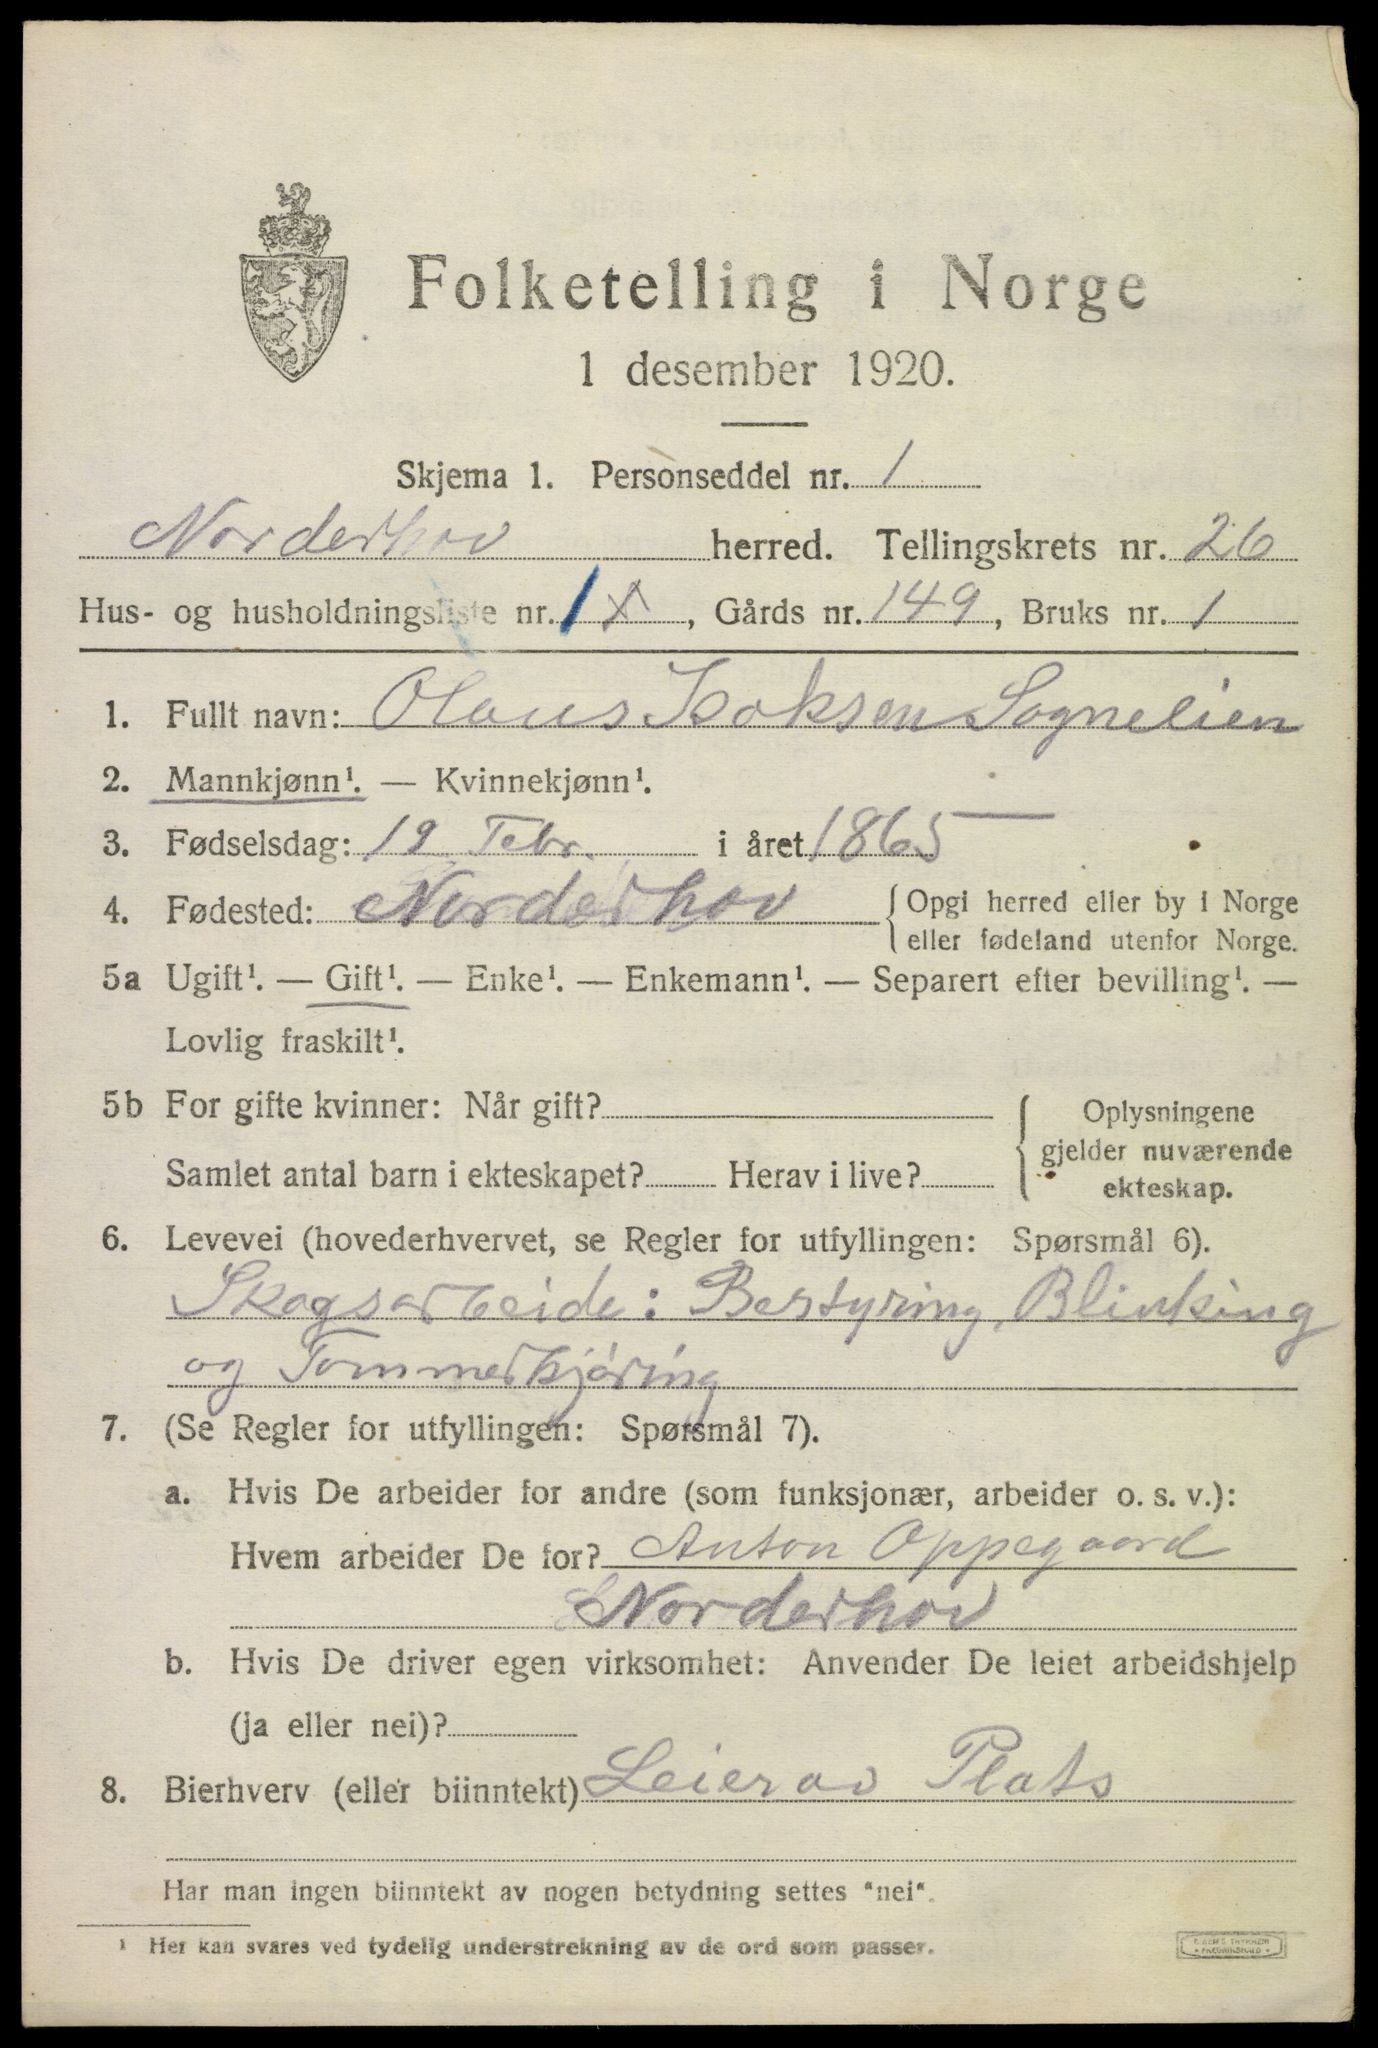 Folketelling i Norge
1 desember 1920.
Skjema 1. Personseddel nr. 1
Norderhov herred. Tellingskrets nr. 26
Hus- og husholdningsliste nr. 1 X, Gårds nr. 149, Bruks nr. 1
1. Fullt navn: Olaus Isaksen Sognelien
2. Mannkjønn¹. — Kvinnekjønn¹.
3. Fødselsdag: 19 Febr. i året 1865
4. Fødested: Norderhov { Opgi herred eller by i Norge
eller fødeland utenfor Norge.
5a Ugift¹. — Gift¹. — Enke¹. — Enkemann¹. — Separert efter bevilling¹. —
Lovlig fraskilt¹.
5b For gifte kvinner: Når gift? { Oplysningene
gjelder nuværende
Samlet antal barn i ekteskapet? Herav i live? ekteskap.
6. Levevei (hovederhvervet, se Regler for utfyllingen: Spørsmål 6).
Skogsarbeide: Bestyring, Blinking
og Tømmerkjøring
7. (Se Regler for utfyllingen: Spørsmål 7).
a. Hvis De arbeider for andre (som funksjonær, arbeider o. s. v.):
Hvem arbeider De for? Anton Oppegaard
Norderhov
b. Hvis De driver egen virksomhet: Anvender De leiet arbeidshjelp
(ja eller nei)?
8. Bierhverv (eller biinntekt) Leier av Plats
Har man ingen biinntekt av nogen betydning settes "nei".
¹ Her kan svares ved tydelig understrekning av de ord som passer.